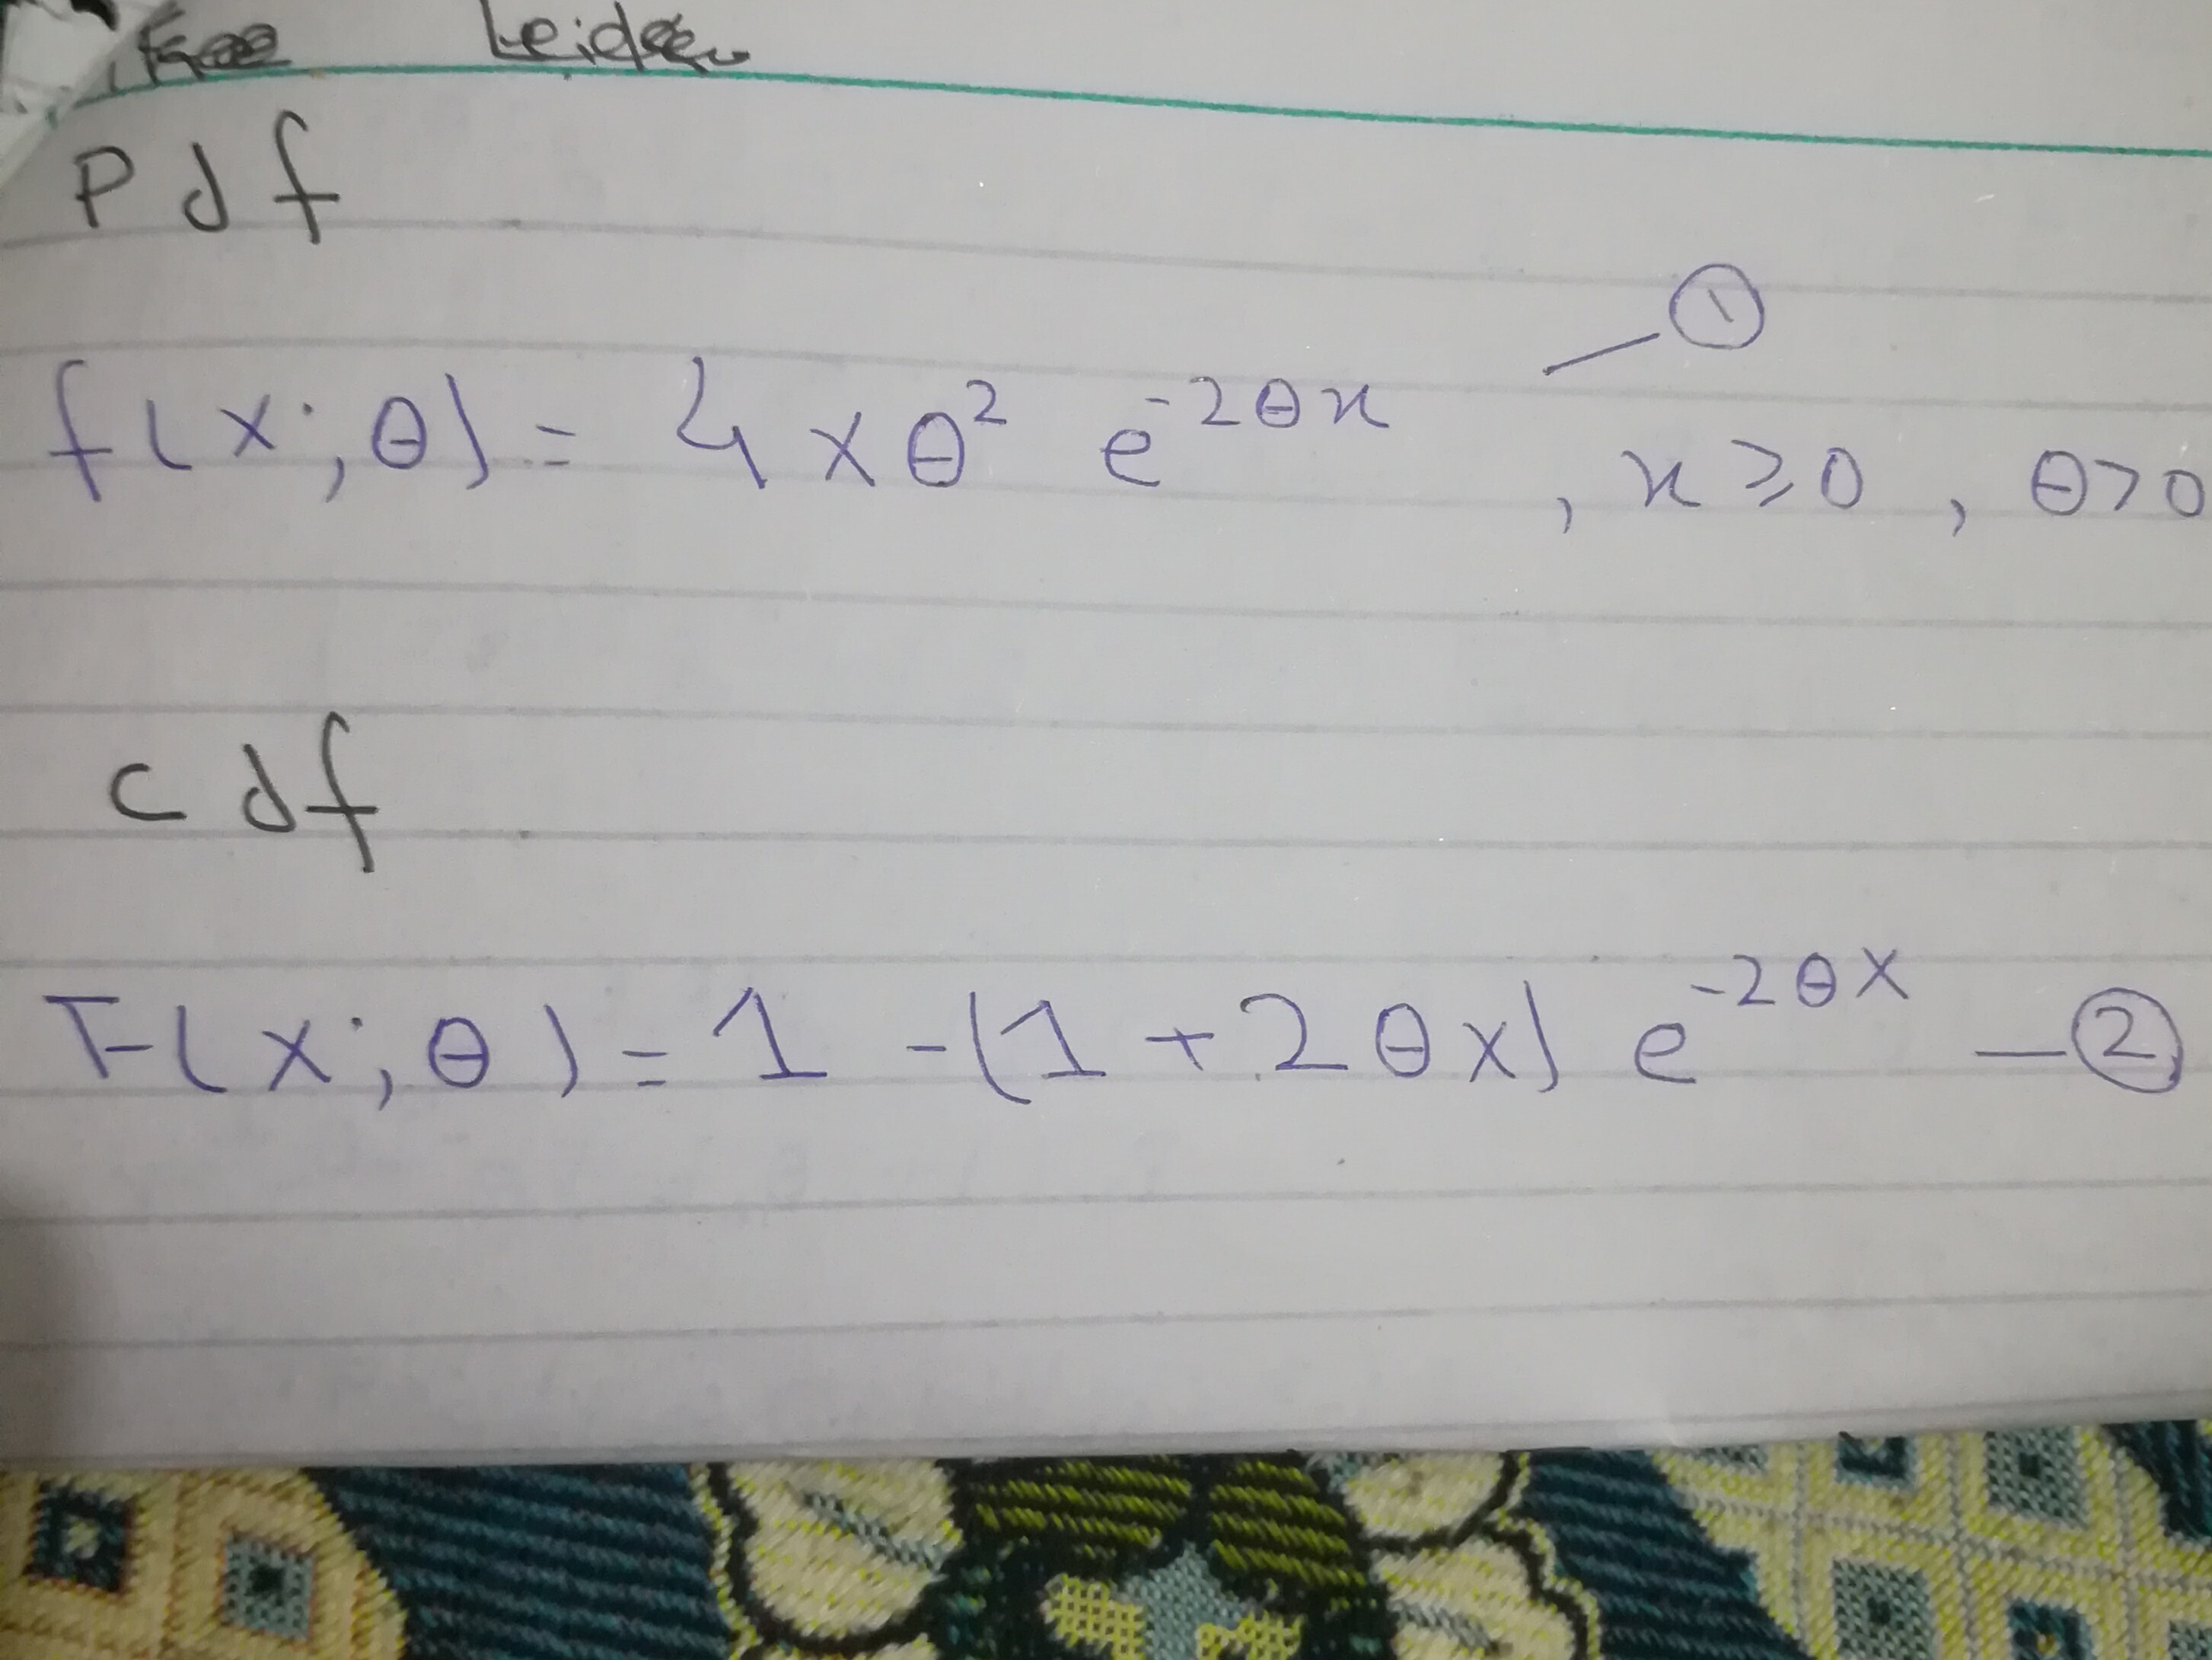 Pdf
①
f(x;θ) = 4xθ² e^-2θx , x ≥ 0 , θ>0
cdf
F(x;θ) = 1 - (1+2θx) e^-2θx — ②